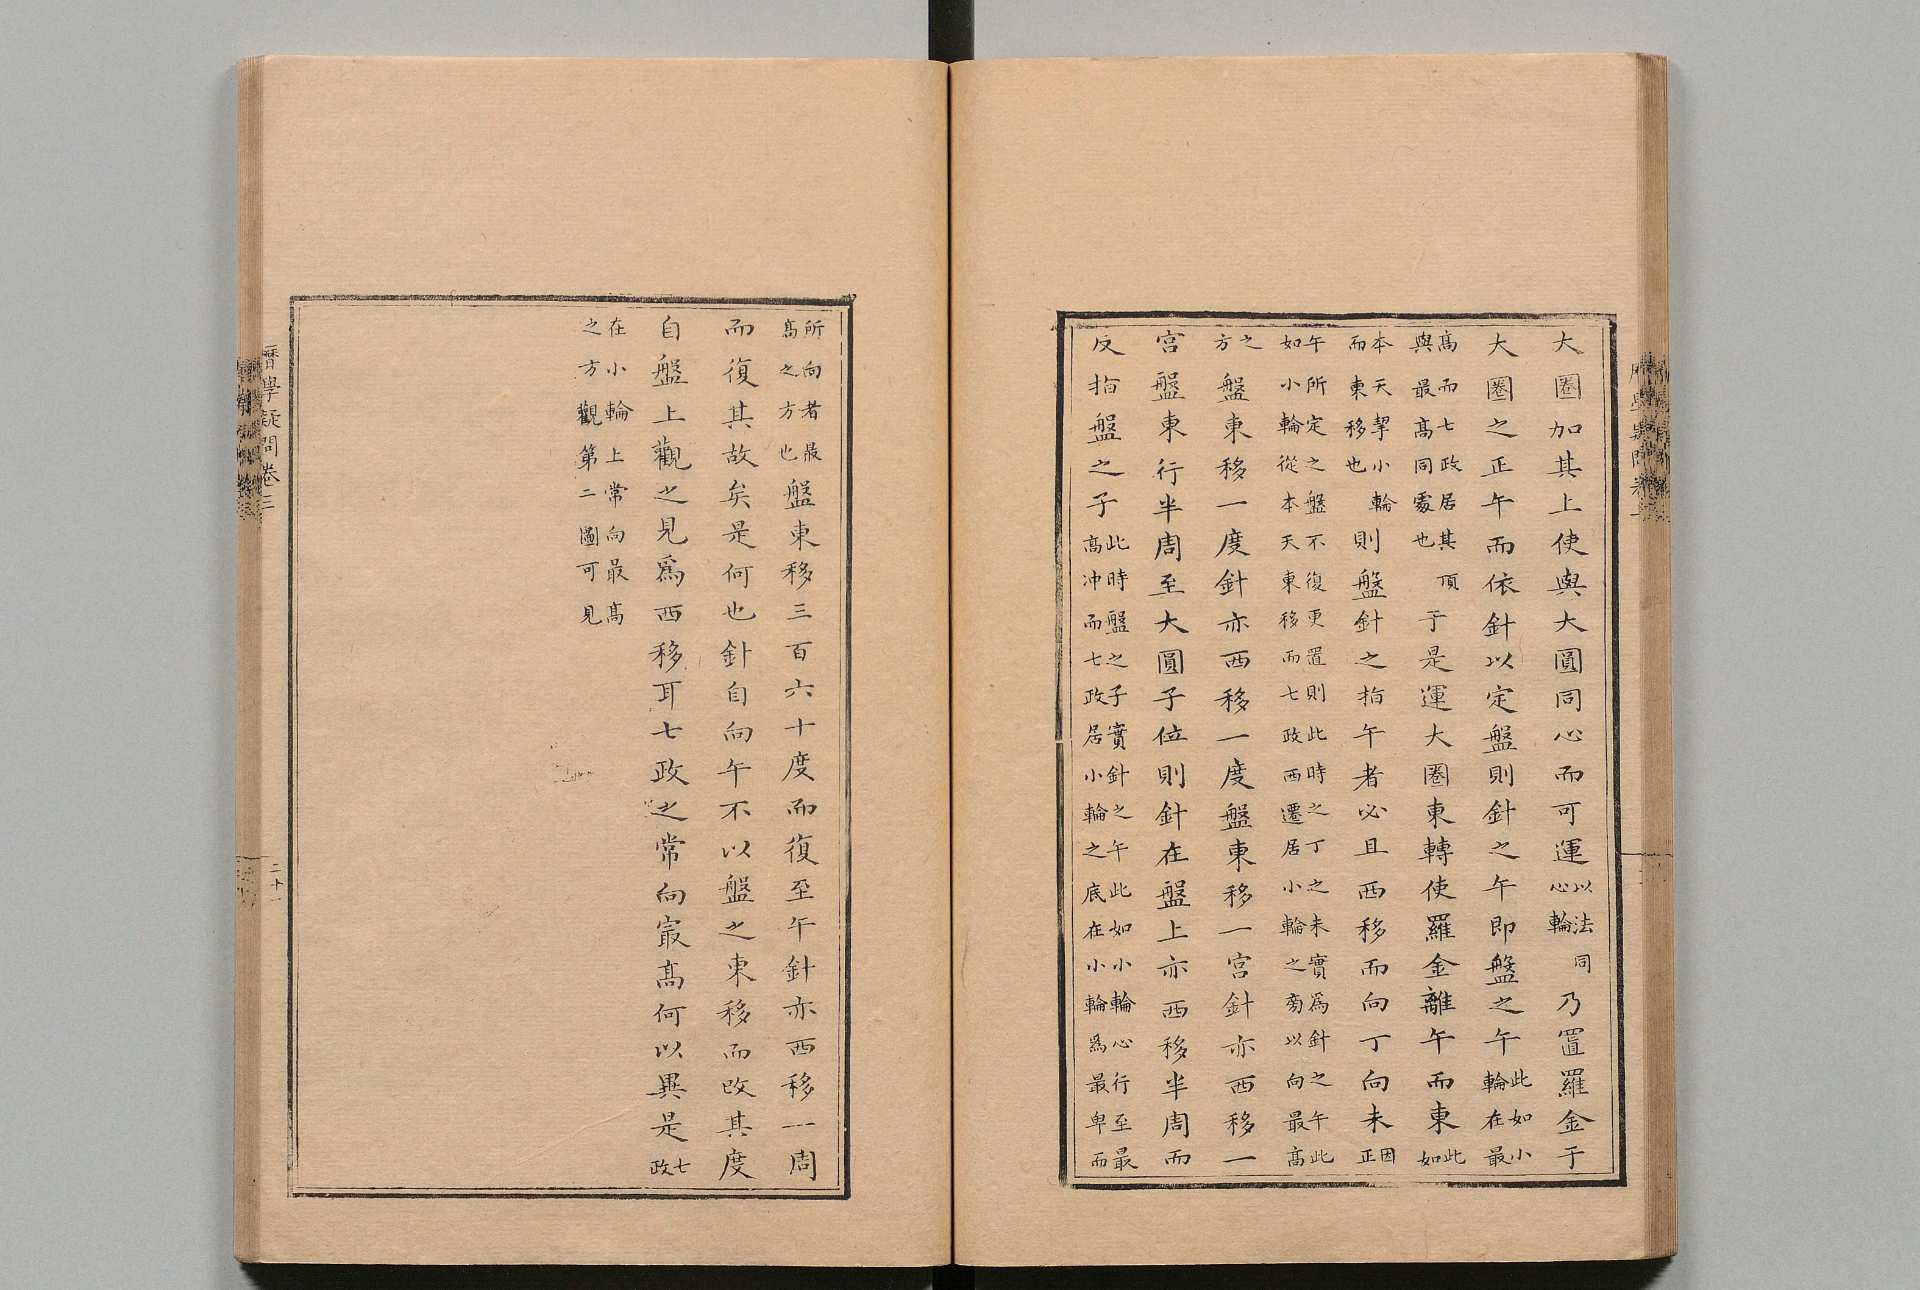 大圈加其上使與大圓同心而可運以法同心輪乃置羅金于
大圈之正午而依針以定盤則針之午即盤之午此如小輪在最
高而七政居其頂與最高同處也于是運大圈東轉使羅金離午而東此如
本天挈小輪而東移也則盤針之指午者必且西移而向丁向未因正
午所定之盤不復更置則此時之丁之未實爲針之午此如小輪從本天東移而七政西遷居小輪之旁以向最高
之方盤東移一度針亦西移一度盤東移一宮針亦西移一
宮盤東行半周至大圓子位則針在盤上亦西移半周而
反指盤之子此時盤之子實針之午此如小輪心行至最高冲而七政居小輪之底在小輪爲最卑而
所向者最高之方也盤東移三百六十度而復至午針亦西移一周
而復其故矣是何也針自向午不以盤之東移而改其度
自盤上觀之見爲西移耳七政之常向最高何以異是七政
在小輪上常向最高之方觀第二圖可見
曆學疑問卷三
二十一